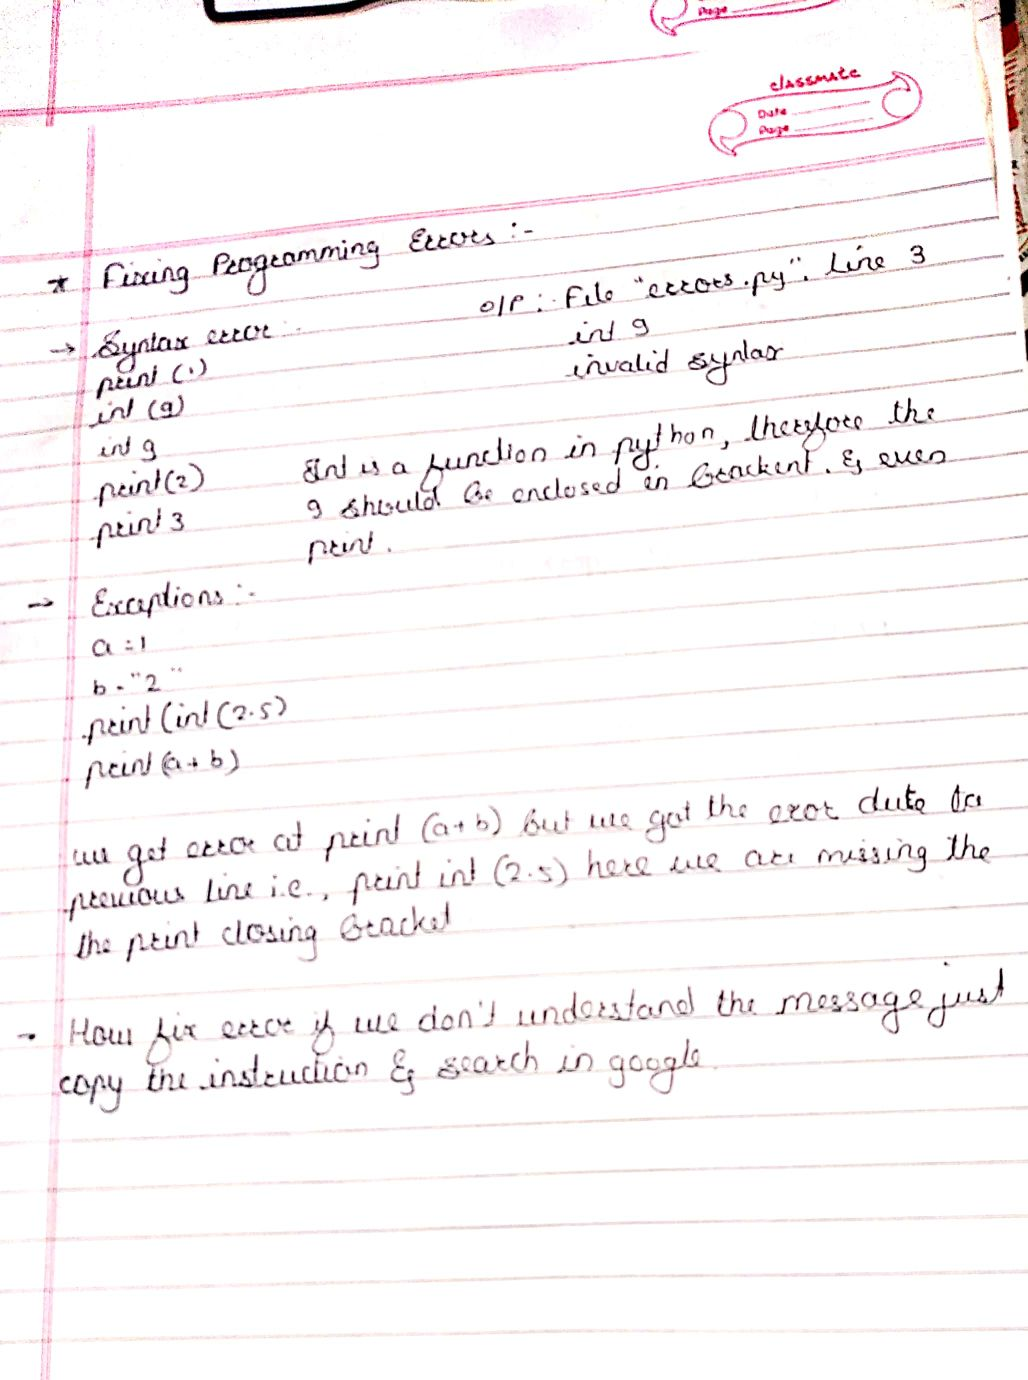 Page
classmate
Date
Page
* Fixing Programming Errors :-
→ Syntax error :-
O/P : File "errors.py". Line 3
int 9
invalid syntax
print (1)
int (9)
int 9
print(2)
print 3
Int is a function in python, therefore the
9 should be enclosed in brackent. & even
print.
→ Exceptions :-
a = 1
b = "2"
print (int (2.5)
print (a + b)
we get error at print (a+b) but we got the eror dute to
previous line i.e., print int (2.5) here we are missing the
the print closing bracket
- How fix error if we don't understand the message just
copy the instruction & search in google.